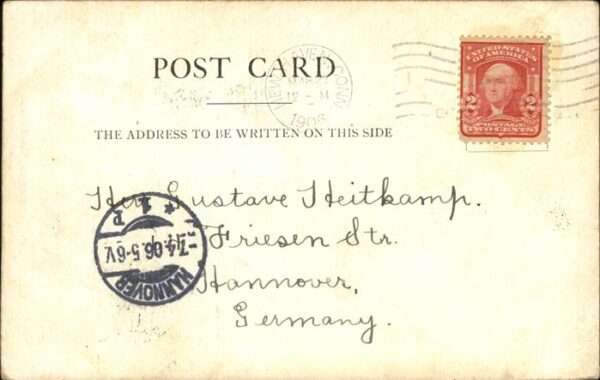 POST CARD
NEW HAVEN, CONN
1906
UNITED STATES
OF AMERICA
2 2
POSTAGE
TWO CENTS
THE ADDRESS TO BE WRITTEN ON THIS SIDE
Herr Gustave Heitkamp.
Friesen Str.
Hannover,
Germany.
HANNOVER
7.4.06.5-6V.
* 1 P